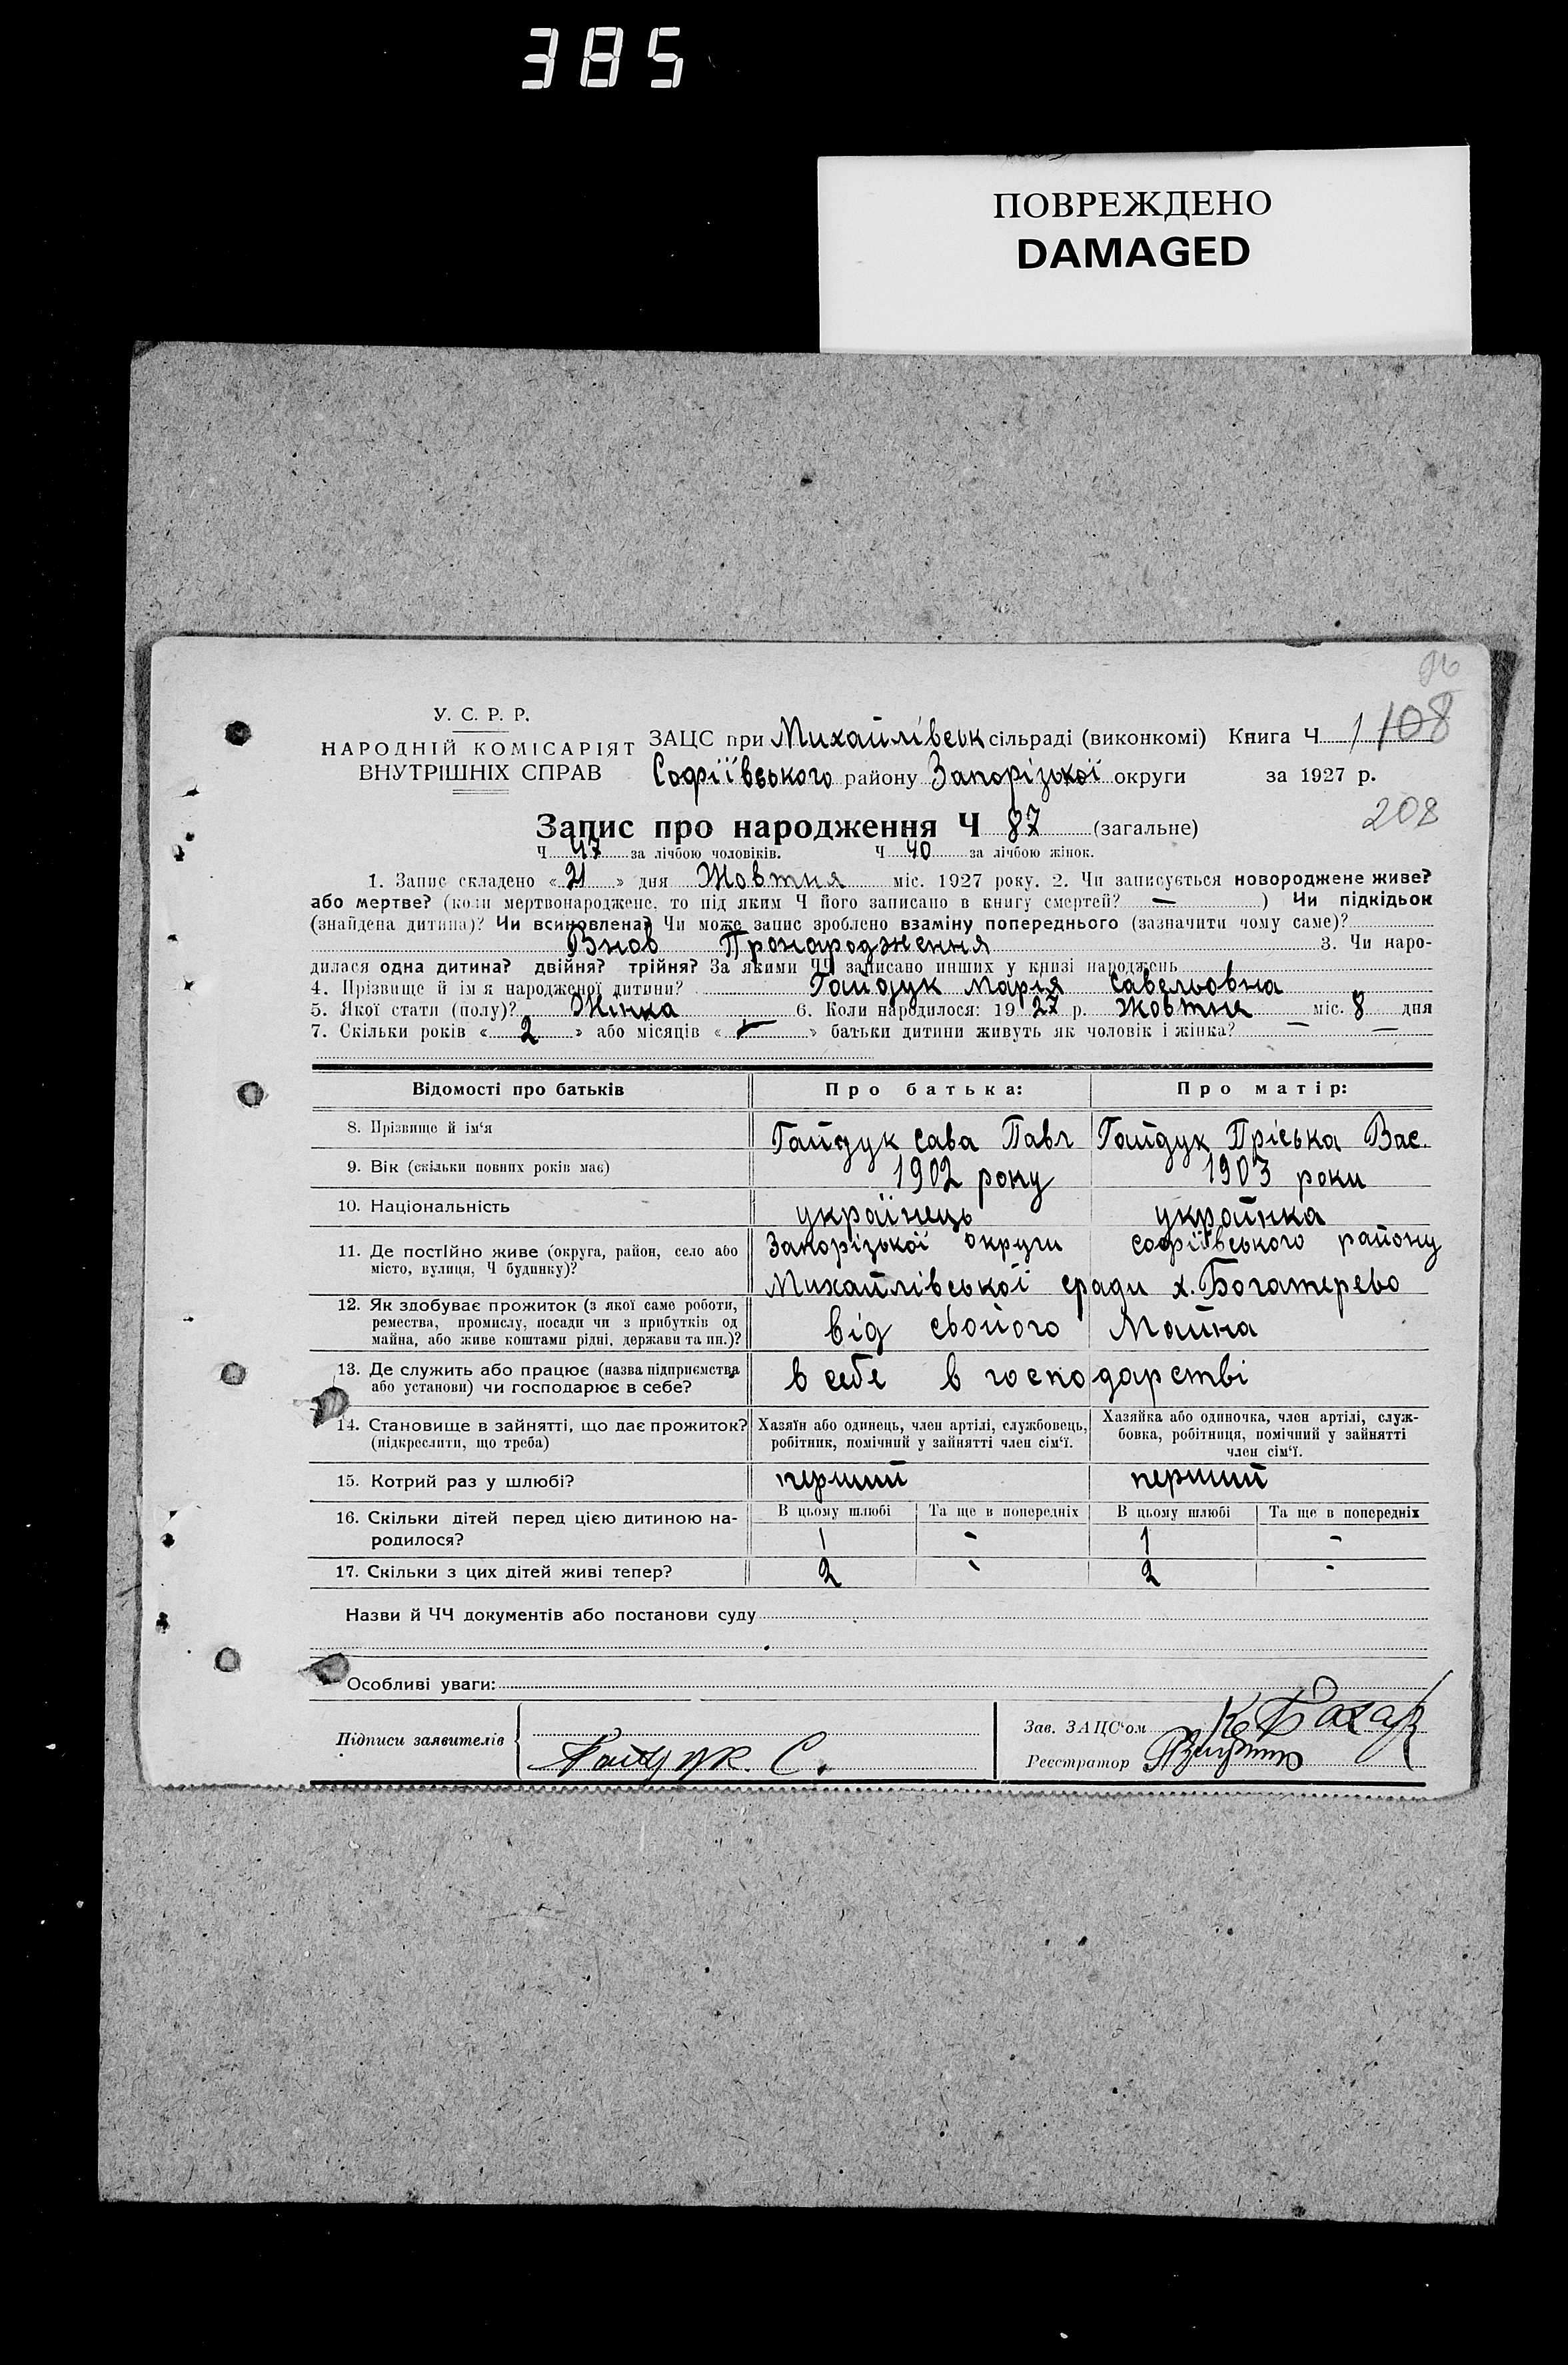 385
ПОВРЕЖДЕНО
DAMAGED
96
У. С. Р. Р.
НАРОДНІЙ КОМІСАРІЯТ
ВНУТРІШНІХ СПРАВ
ЗАЦС при Михайлівськ сільраді (виконкомі) Книга Ч 1 108
Софіївського району Запорізької округи за 1927 р.
208
Запис про народження Ч 87 (загальне)
Ч 47 за лічбою чоловіків. Ч 40 за лічбою жінок.
1. Запис складено «21» дня Жовтня міс. 1927 року. 2. Чи записується новороджене живе?
або мертве? (коли мертвонароджене, то під яким Ч його записано в книгу смертей? —) Чи підкідьок
(знайдена дитина)? Чи всиновлена? Чи може запис зроблено взаміну попереднього (зазначити чому саме)?
Внов Пронародження 3. Чи наро-
дилася одна дитина? двійня? трійня? За якими ЧЧ записано инших у книзі народжень
4. Прізвище й ім'я народженої дитини? Гайдук Марія Савельовна
5. Якої стати (полу)? Жінка 6. Коли народилося: 1927 р. Жовтня міс. 8 дня
7. Скільки років «2» або місяців «—» батьки дитини живуть як чоловік і жінка? — —
Відомості про батьків Про батька: Про матір:
8. Прізвище й ім'я Гайдук Сава Павл Гайдук Пріська Вас.
9. Вік (скільки повних років має) 1902 року 1903 роки
10. Національність українець украйнка
11. Де постійно живе (округа, район, село або Запорізької округи Софіївського району
місто, вулиця, Ч будинку)? Михайлівської сради х. Богатерево
12. Як здобуває прожиток (з якої саме роботи,
ремества, промислу, посади чи з прибутків од
майна, або живе коштами рідні, держави та ин.)? від свойого Майна
13. Де служить або працює (назва підприємства
або установи) чи господарює в себе? в себе в господарстві
14. Становище в зайнятті, що дає прожиток? Хазяїн або одинець, член артілі, службовець, Хазяйка або одиночка, член артілі, служ-
(підкреслити, що треба) робітник, помічний у зайнятті член сім'ї. бовка, робітниця, помічний у зайнятті
член сім'ї.
15. Котрий раз у шлюбі? перший перший
16. Скільки дітей перед цією дитиною на- В цьому шлюбі Та ще в попередніх В цьому шлюбі Та ще в попередніх
родилося? 1 - 1 -
17. Скільки з цих дітей живі тепер? 2 - 2 -
Назви й ЧЧ документів або постанови суду
Особливі уваги:
Підписи заявителів Гайдук С.
Зав. ЗАЦС'ом
Реєстратор